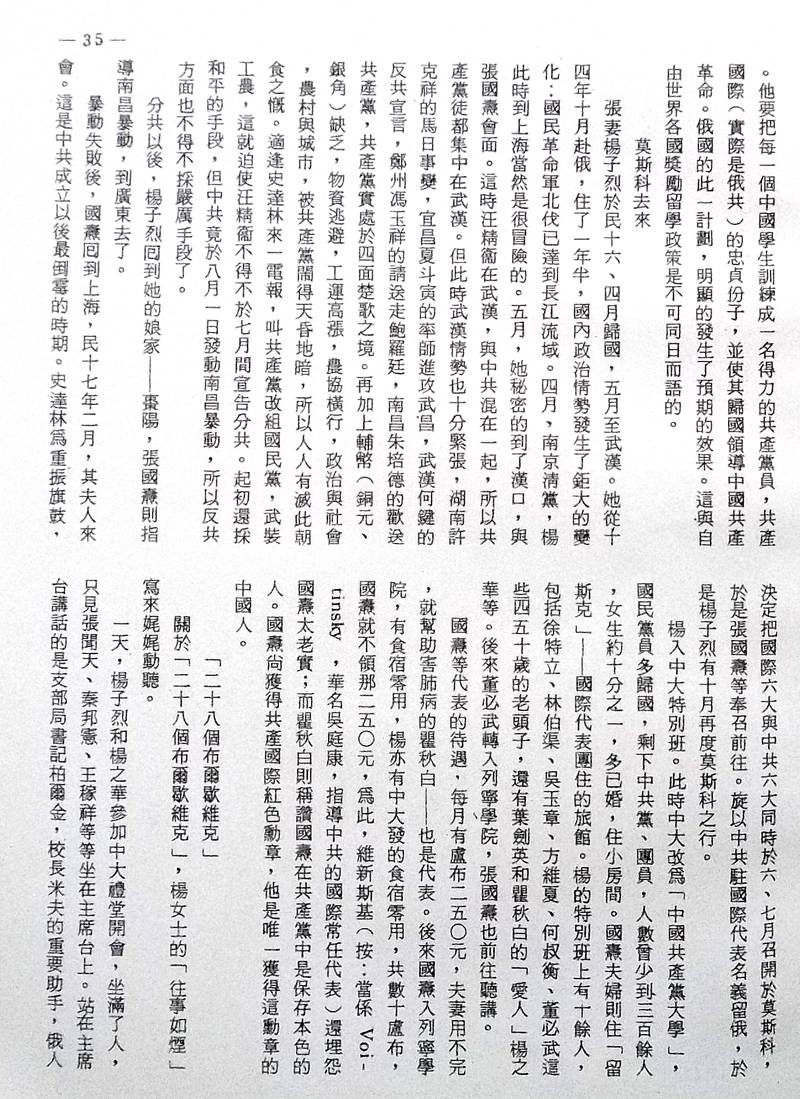 — 35 —
。他要把每一個中國學生訓練成一名得力的共產黨員，共產
國際（實際是俄共）的忠貞份子，並使其歸國領導中國共產
革命。俄國的此一計劃，明顯的發生了預期的效果。這與自
由世界各國獎勵留學政策是不可同日而語的。
莫斯科去來
張妻楊子烈於民十六、四月歸國，五月至武漢。她從十
四年十月赴俄，住了一年半，國內政治情勢發生了鉅大的變
化：國民革命軍北伐已達到長江流域。四月，南京清黨，楊
此時到上海當然是很冒險的。五月，她秘密的到了漢口，與
張國燾會面。這時汪精衞在武漢，與中共混在一起，所以共
產黨徒都集中在武漢。但此時武漢情勢也十分緊張，湖南許
克祥的馬日事變，宜昌夏斗寅的率師進攻武昌，武漢何鍵的
反共宣言，鄭州馮玉祥的請送走鮑羅廷，南昌朱培德的歡送
共產黨，共產黨實處於四面楚歌之境。再加上輔幣（銅元、
銀角）缺乏，物資逃避，工運高漲，農協橫行，政治與社會
，農村與城市，被共產黨鬧得天昏地暗，所以人人有滅此朝
食之慨。適逢史達林來一電報，叫共產黨改組國民黨，武裝
工農，這就迫使汪精衞不得不於七月間宣告分共。起初還採
和平的手段，但中共竟於八月一日發動南昌暴動，所以反共
方面也不得不採嚴厲手段了。
分共以後，楊子烈囘到她的娘家——棗陽，張國燾則指
導南昌暴動，到廣東去了。
暴動失敗後，國燾囘到上海，民十七年二月，其夫人來
會。這是中共成立以後最倒霉的時期。史達林爲重振旗鼓，
決定把國際六大與中共六大同時於六、七月召開於莫斯科，
於是張國燾等奉召前往。旋以中共駐國際代表名義留俄，於
是楊子烈有十月再度莫斯科之行。
楊入中大特別班。此時中大改爲「中國共產黨大學」，
國民黨員多歸國，剩下中共黨、團員，人數曾少到三百餘人
，女生約十分之一，多已婚，住小房間。國燾夫婦則住「留
斯克」——國際代表團住的旅館。楊的特別班上有十餘人，
包括徐特立、林伯渠、吳玉章、方維夏、何叔衡、董必武這
些四五十歲的老頭子，還有葉劍英和瞿秋白的「愛人」楊之
華等。後來董必武轉入列寧學院，張國燾也前往聽講。
國燾等代表的待遇，每月有盧布二五〇元，夫妻用不完
，就幫助害肺病的瞿秋白——也是代表。後來國燾入列寧學
院，有食宿零用，楊亦有中大發的食宿零用，共數十盧布，
國燾就不領那二五〇元，爲此，維新斯基（按：當係 Voi-
tinsky ，華名吳庭康，指導中共的國際常任代表）還埋怨
國燾太老實；而瞿秋白則稱讚國燾在共產黨中是保存本色的
人。國燾尙獲得共產國際紅色勳章，他是唯一獲得這勳章的
中國人。
「二十八個布爾歇維克」
關於「二十八個布爾歇維克」，楊女士的「往事如煙」
寫來娓娓動聽。
一天，楊子烈和楊之華參加中大禮堂開會，坐滿了人，
只見張聞天、秦邦憲、王稼祥等等坐在主席台上。站在主席
台講話的是支部局書記柏爾金，校長米夫的重要助手，俄人